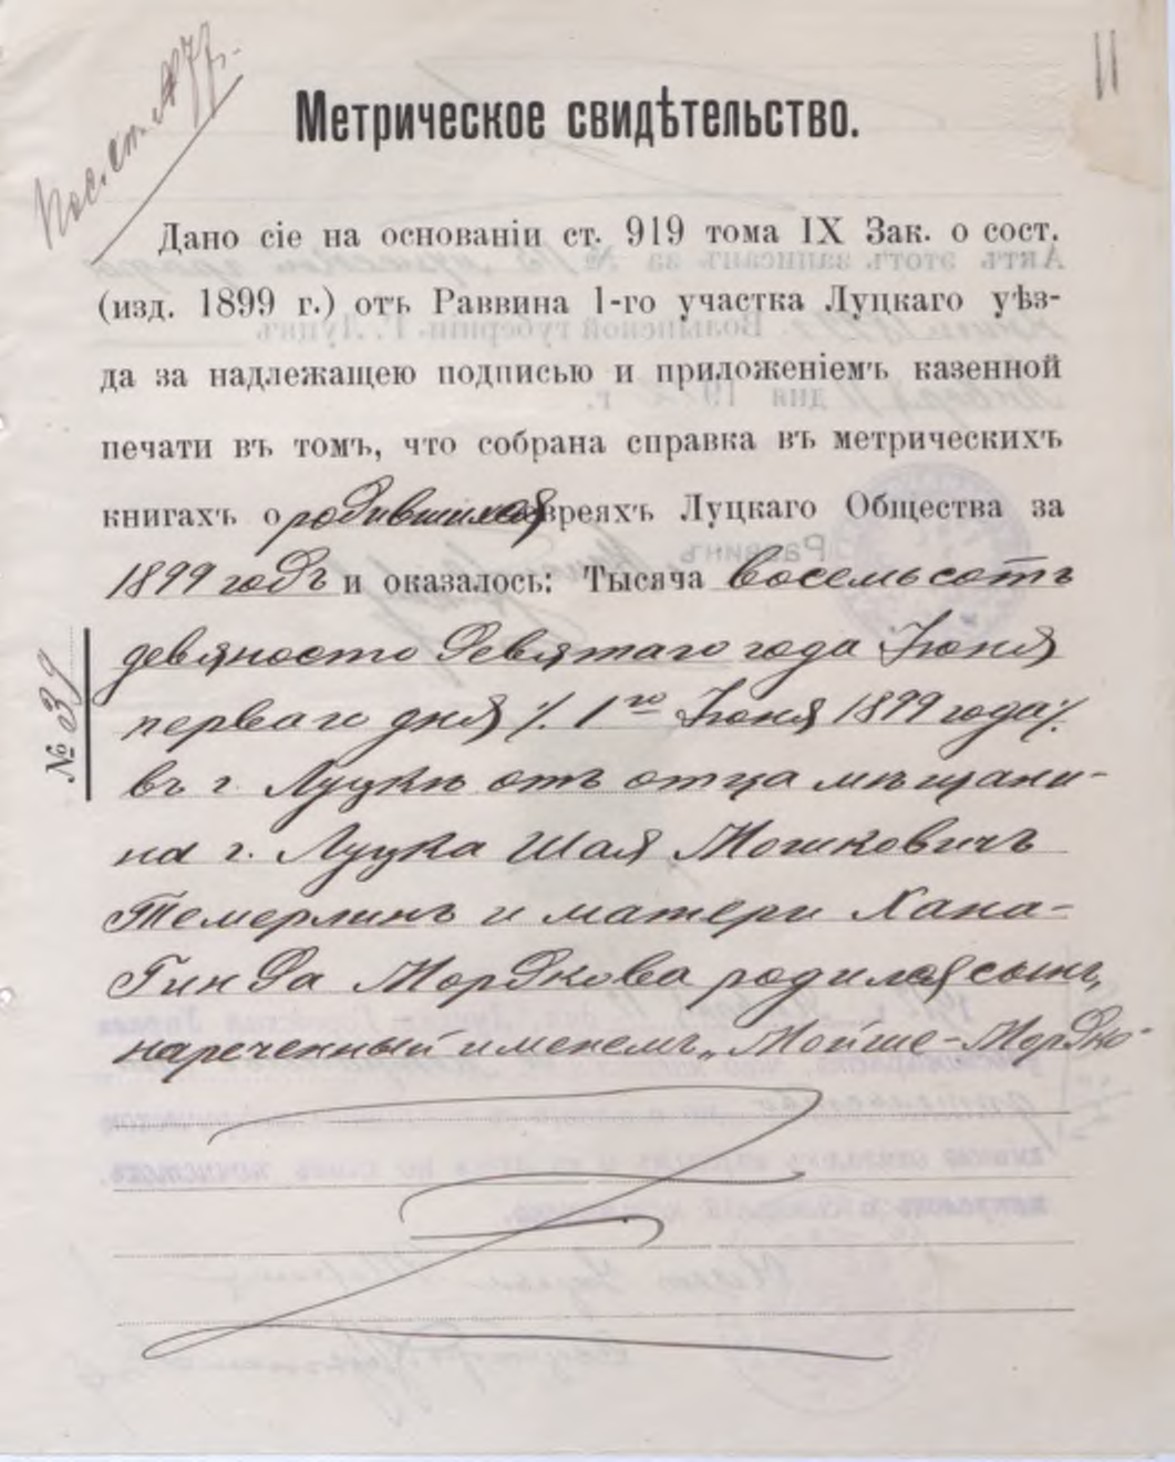 Пос. ст. № 77.
11
Метрическое свидѣтельство.
Дано сіе на основаніи ст. 919 тома IX Зак. о сост.
(изд. 1899 г.) отъ Раввина 1-го участка Луцкаго уѣз-
да за надлежащею подписью и приложеніемъ казенной
печати въ томъ, что собрана справка въ метрическихъ
книгахъ о родившихся евреяхъ Луцкаго Общества за
1899 годъ и оказалось: Тысяча восемьсотъ
девяносто девятаго года Іюня
перваго дня /. 1го Іюня 1899 года /.
въ г. Луцкѣ отъ отца мѣщани-
на г. Луцка Шая Мошковичъ
Темерлинъ и матери Хана-
Гинда Мордкова родился сынъ,
нареченный именемъ „Мойше-Мордко"
№ 39